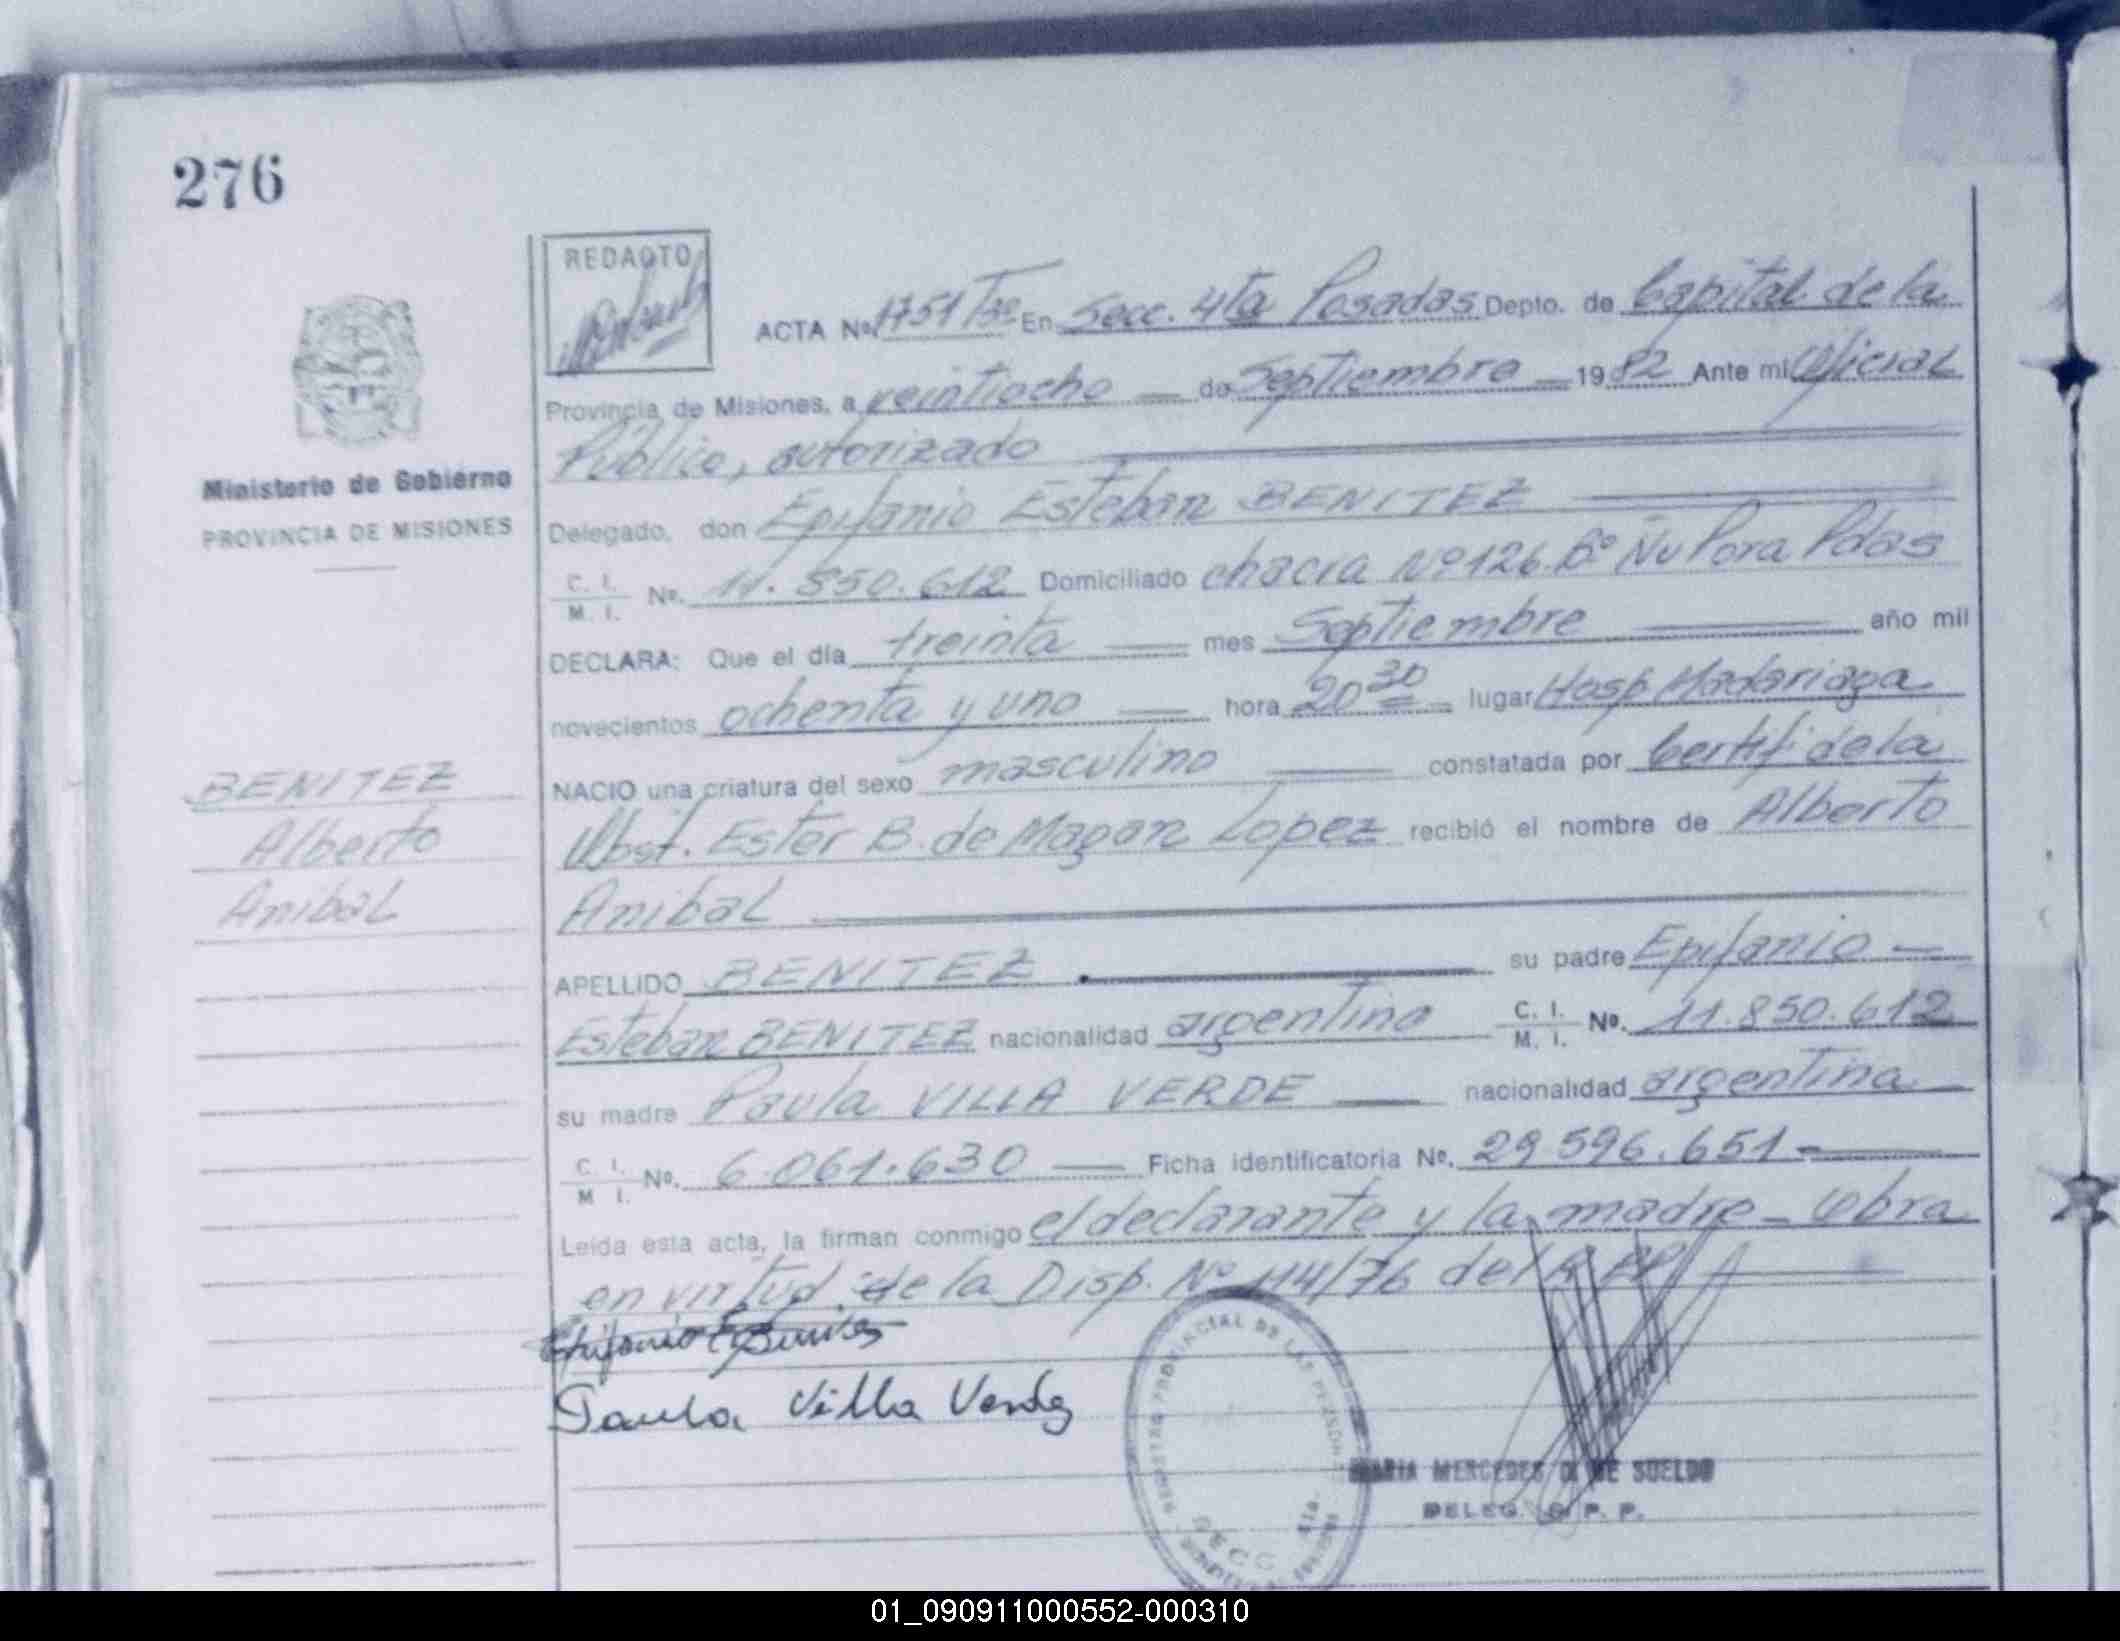 276
REDACTO
ACTA Nº 1751 Tº 3º En Secc. 4ta Posadas Depto. de Capital de la
Provincia de Misiones, a veintiocho de Septiembre 1982 Ante mi Oficial
Público, autorizado
Ministerio de Gobierno
PROVINCIA DE MISIONES
Delegado, don Epifanio Esteban BENITEZ
C. I. M. I. Nº. 11.850.612 Domiciliado chacra Nº 126 Bº Ñu Pora Pdas
DECLARA: Que el día treinta mes Septiembre año mil
novecientos ochenta y uno hora 20 30 lugar Hosp Madariaga
NACIO una criatura del sexo masculino constatada por Certif de la
Obst. Ester B. de Magan Lopez recibió el nombre de Alberto
Anibal
BENITEZ
Alberto
Anibal
APELLIDO BENITEZ su padre Epifanio
Esteban BENITEZ nacionalidad argentina C. I. M. I. Nº. 11.850.612
su madre Paula VILLA VERDE nacionalidad argentina
C. I. M I. Nº. 6.061.630 Ficha identificatoria Nº. 29.596.651
Leída esta acta, la firman conmigo el declarante y la madre - Obra
en virtud de la Disp. Nº 114/76 del R PP
Epifanio E Benitez
Paula Villa Verde
REGISTRO PROVINCIAL DE LAS PERSONAS
SECC 4ta.
MARIA MERCEDES DE SUELDO
DELEG. R. P. P.
01_090911000552-000310